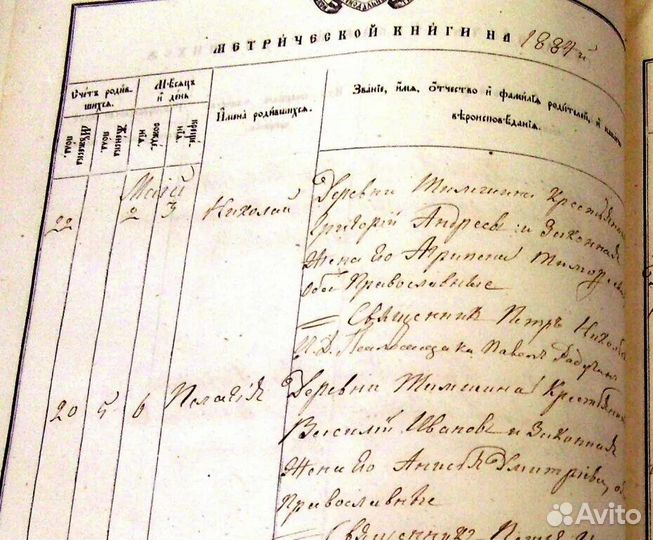 МЕТРИЧЕСКОЙ КНИГИ НА 1884й
Счетъ родив-
шихся.
Мѣсяцъ
и день
Имена родившихся.
Званіе, имя, отчество и фамилія родителей, и какого
вѣроисповѣданія.
Мужеска
пола.
Женска
пола.
рожде-
нія.
креще-
нія.
Маій
22 2 3 Николай
Деревни Тимшина Крестьянинъ
Григорій Андреевъ и Законная
Жена Его Агрипена Тимофеева
оба Православные
Священникъ Петръ
И. Д. Псаломщика Павелъ
20 5 6 Пелагія
Деревни Тимшина Крестьянинъ
Василій Ивановъ и Законная
Жена Его Анисья Дмитріева,
Православные
Священникъ Петръ
Avito